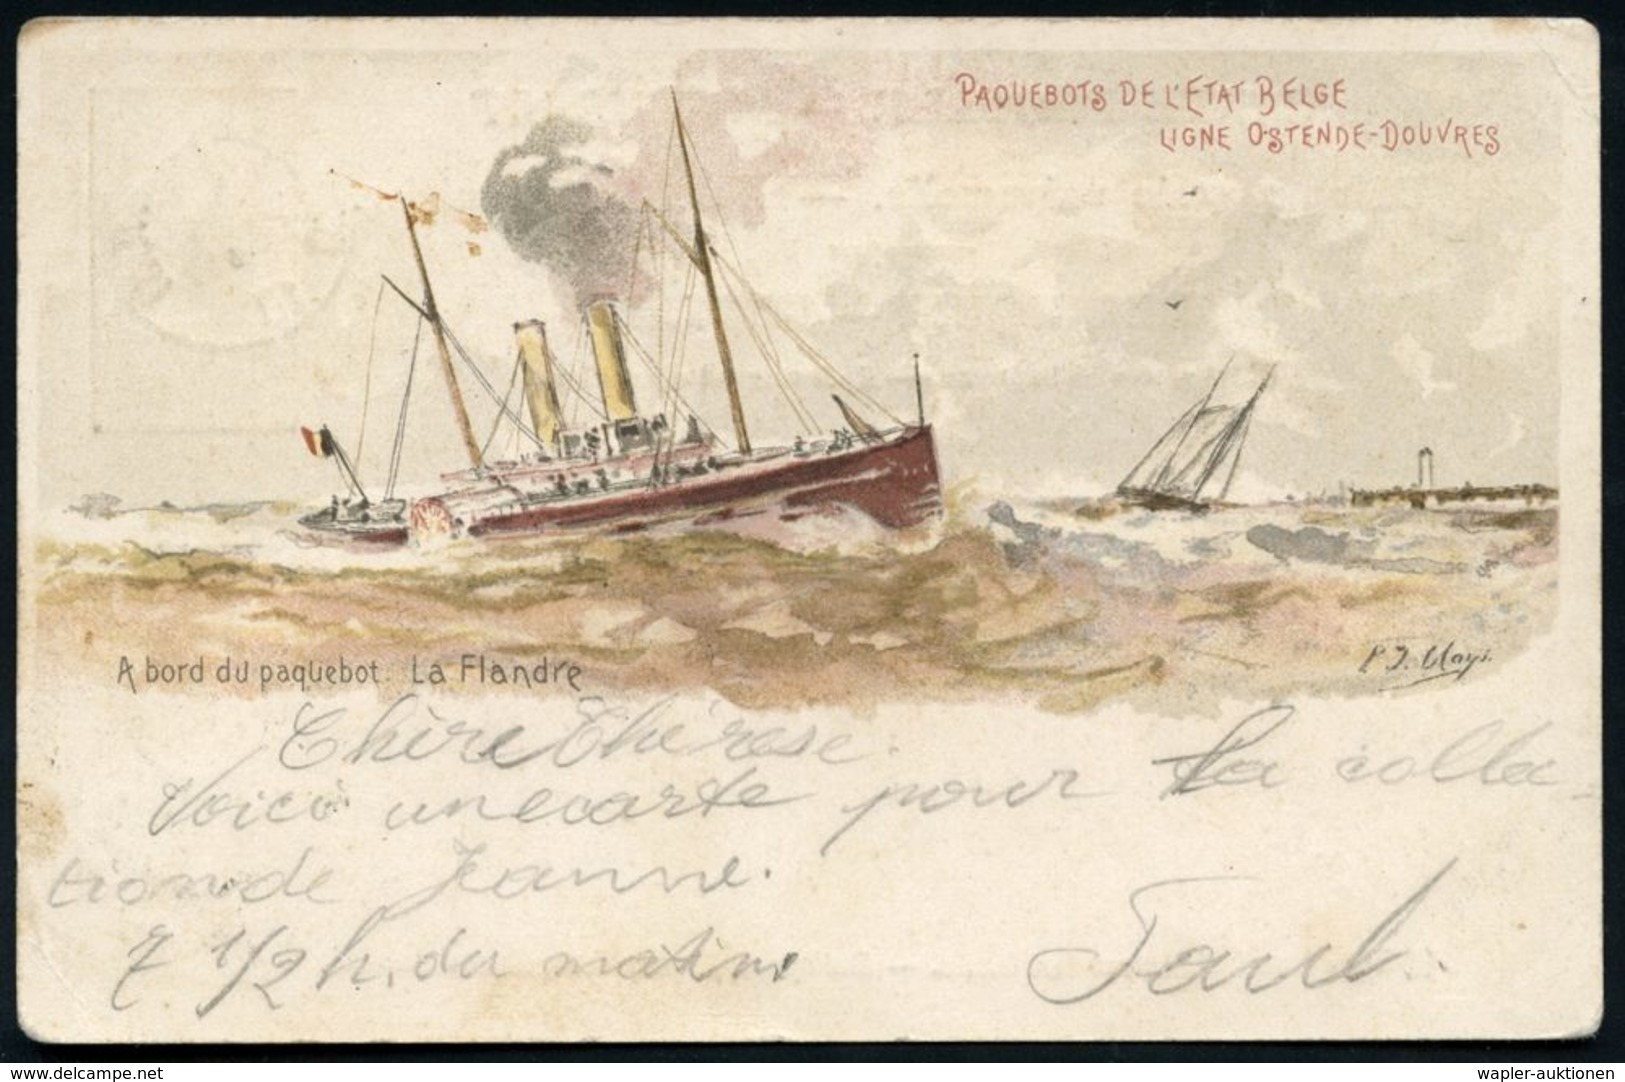 PAQUEBOTS DE L'ETAT BELGE
LIGNE OSTENDE-DOUVRES
A bord du paquebot. La Flandre
P. J. Clays.
Chère Thérèse.
Voici une carte pour la colla-
tion de Jeanne.
7 1/2 h. du matin
Paul.
www.delcampe.net
wapler-auktionen